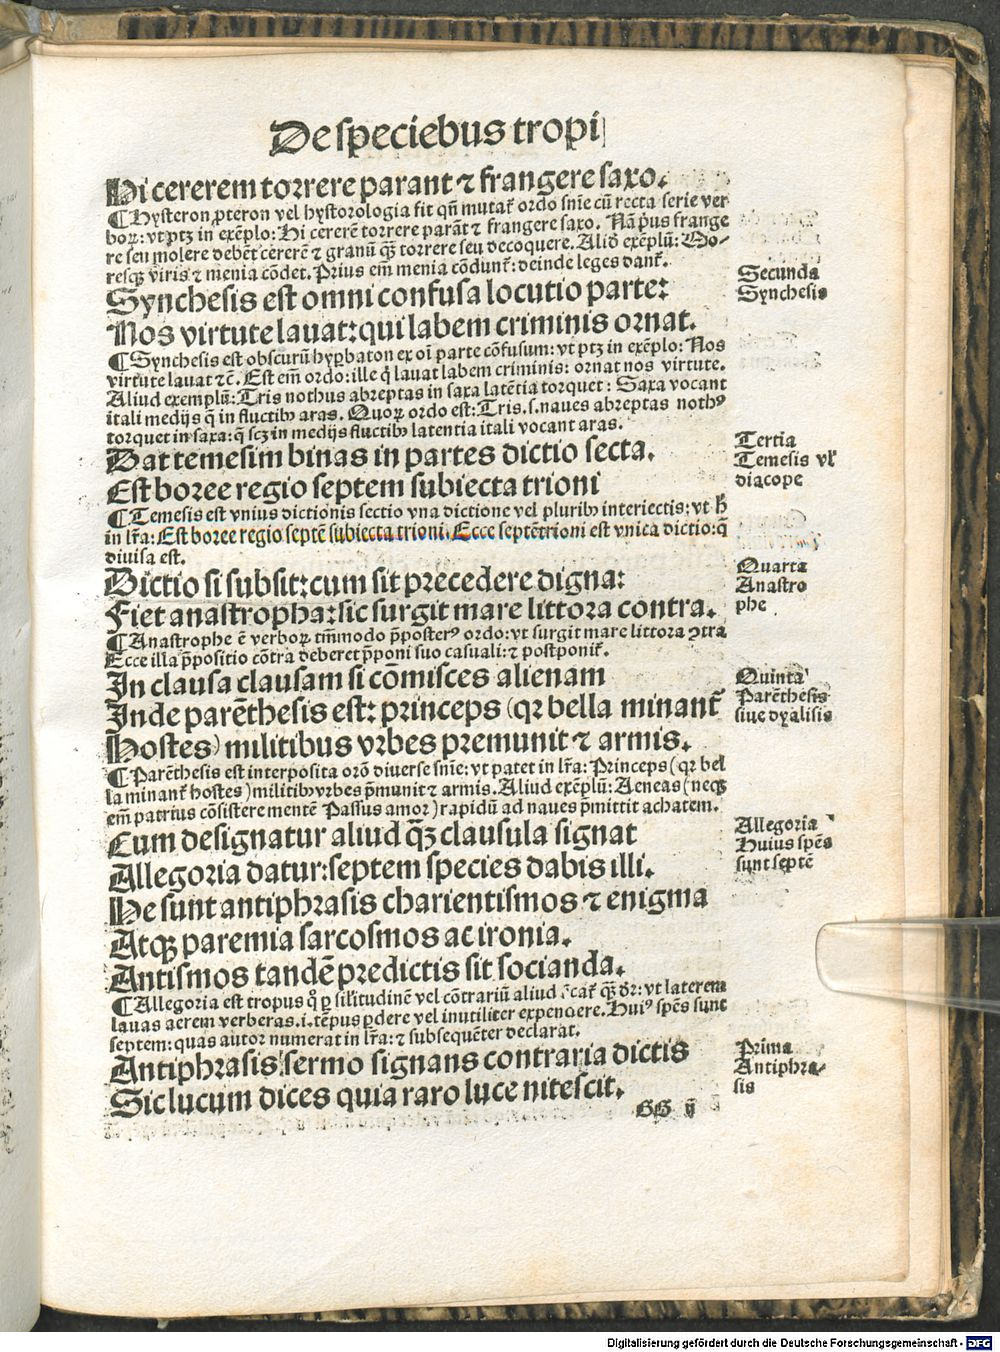 De speciebus tropi
Hi cererem torrere parant ⁊ frangere saxo.
¶ Hysteron ꝓteron vel hystorologia fit qñ mutat̃ ordo snĩe cũ recta serie ver
boꝝ: vt ptꝫ in exẽplo: Hi cererẽ torrere parãt ⁊ frangere saxo. Nã pͥus frange
re seu molere debẽt cererẽ ⁊ granũ qꝫ̃ torrere seu decoquere. Aliđ exẽplũ: Mo-
resqꝫ viris ⁊ menia cõdet. Prius em̃ menia cõdunt̃: deinde leges dant̃.
Secunda
Synchesis
Synchesis est omni confusa locutio parte:
Nos virtute lauat: qui labem criminis ornat.
¶ Synchesis est obscurũ hyꝑbaton ex oĩ parte cõfusum: vt ptꝫ in exẽplo: Nos
virtute lauat ⁊c̃. Est em̃ ordo: ille q̇ lauat labem criminis: ornat nos virtute.
Aliud exemplũ: Tris nothus abreptas in saxa latẽtia torquet: Saxa vocant
itali medijs q̃ in fluctibꝰ aras. Quoꝝ ordo est: Tris .s. naues abreptas nothꝰ
torquet in saxa: q̃ scꝫ in medijs fluctibꝰ latentia itali vocant aras.
Tertia
Temesis vl̃
diacope
Dat temesim binas in partes dictio secta.
Est boree regio septem subiecta trioni
¶ Temesis est vnius dictionis sectio vna dictione vel pluribꝰ interiectis: vt h̃
in lr̃a: Est boree regio septẽ subiecta trioni. Ecce septẽtrioni est vnica dictio: q̃
diuisa est.
Quarta
Anastro
phe
Dictio si subsit: cum sit precedere digna:
Fiet anastropha: sic surgit mare littora contra.
¶ Anastrophe ẽ verboꝝ tm̃modo p̃posterꝰ ordo: vt surgit mare littora ꝯtra
Ecce illa p̃positio cõtra deberet p̃poni suo casuali: ⁊ postponit̃.
Quinta
Parẽthesis
siue dyalisis
In clausa clausam si cõmisces alienam
Inde parẽthesis est: princeps (qꝛ bella minant̃
Hostes) militibus vrbes premunit ⁊ armis.
¶ Parẽthesis est interposita orõ diuerse snĩe: vt patet in lr̃a: Princeps (qꝛ bel
la minant̃ hostes) militibꝰ vrbes p̃munit ⁊ armis. Aliud exẽplũ: Aeneas (neqꝫ
em̃ patrius cõsistere mentẽ Passus amor) rapidũ ad naues p̃mittit achatem.
Allegoria
Huius spẽs
sunt septẽ
Cum designatur aliud q̃ꝫ clausula signat
Allegoria datur: septem species dabis illi.
He sunt antiphrasis charientismos ⁊ enigma
Atqꝫ paremia sarcosmos ac ironia.
Antismos tandẽ predictis sit socianda.
¶ Allegoria est tropus q̊ ꝑ sil̃itudinẽ vel cõtrariũ aliud qꝫ̃ dr̃: vt laterem
lauas aerem verberas .i. tẽpus ꝑdere vel inutiliter expendere. Huiꝰ spẽs sunt
septem: quas autor numerat in lr̃a: ⁊ subsequẽter declarat.
Prima
Antiphra-
sis
Antiphrasis sermo signans contraria dictis
Sic lucum dices quia raro luce nitescit.
GG ij
Digitalisierung gefördert durch die Deutsche Forschungsgemeinschaft - DFG